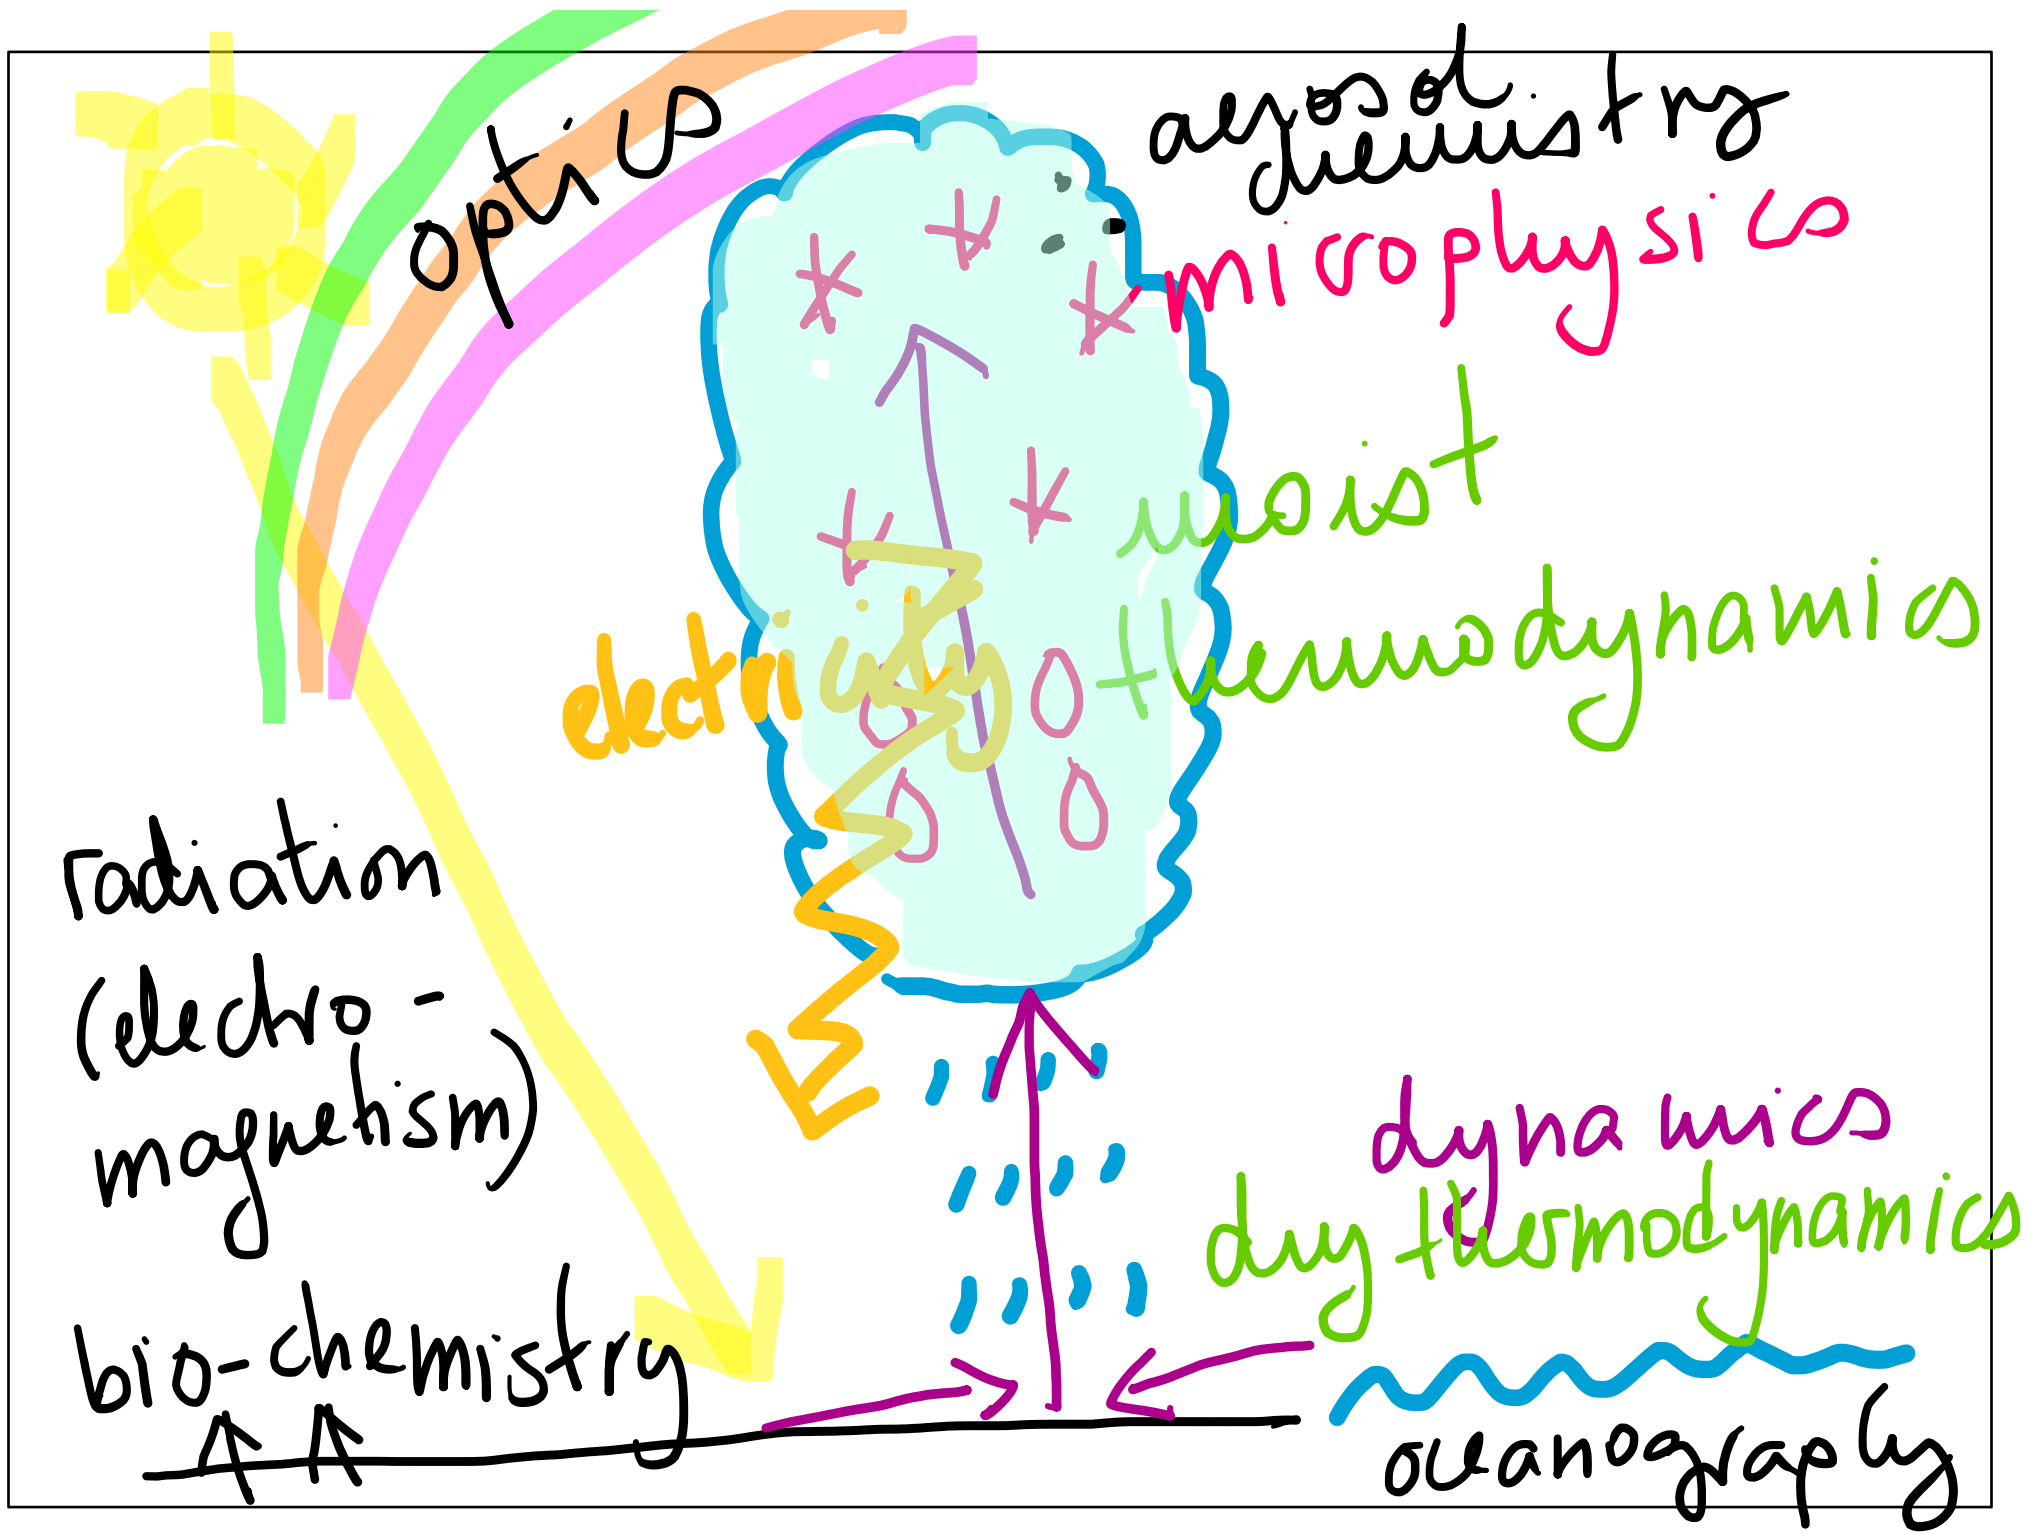 optics
aerosol
chemistry
microphysics
moist
thermodynamics
electricity
radiation
(electro-
magnetism)
dynamics
dry thermodynamics
bio-chemistry
oceanography